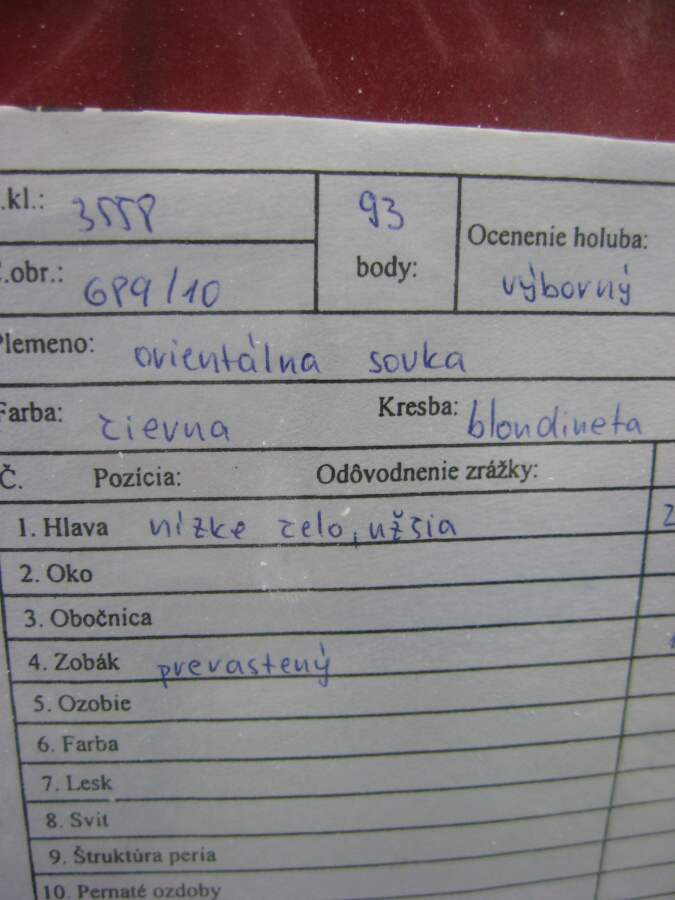 .kl.: 3558 93
body: Ocenenie holuba:
.obr.: 689/10 výborný
Plemeno: orientálna sovka
Farba: čierna Kresba: blondineta
Č. Pozícia: Odôvodnenie zrážky:
1. Hlava nízke čelo, užšia 2
2. Oko
3. Obočnica
4. Zobák prerastený
5. Ozobie
6. Farba
7. Lesk
8. Svit
9. Štruktúra peria
10. Pernaté ozdoby